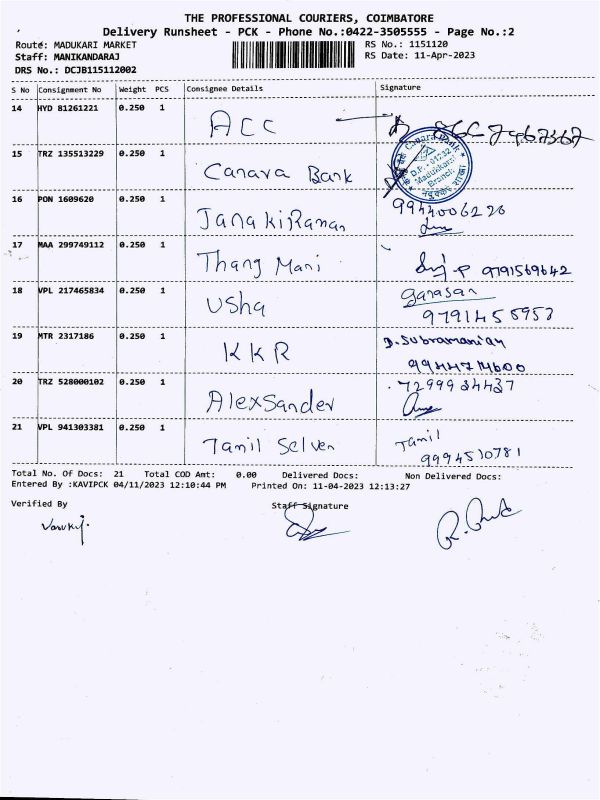 THE PROFESSIONAL COURIERS, COIMBATORE
Delivery Runsheet - PCK - Phone No.:0422-3505555 - Page No.:2
Route: MADUKARI MARKET RS No.: 1151120
Staff: MANIKANDARAJ RS Date: 11-Apr-2023
DRS No.: DCJB115112002
S No Consignment No Weight PCS Consignee Details Signature
14 HYD 81261221 0.250 1 ACC
15 TRZ 135513229 0.250 1 Canara Bank
16 PON 1609620 0.250 1 JanakiRaman 9944006226
17 MAA 299749112 0.250 1 Thang Mani 9791569642
18 VPL 217465834 0.250 1 Usha ganasan
9791455953
19 MTR 2317186 0.250 1 KKR D.Subramanian
20 TRZ 528000102 0.250 1 AlexSander 7299934437
21 VPL 941303381 0.250 1 Tamil Selven Tamil
9994510781
Total No. Of Docs: 21 Total COD Amt: 0.00 Delivered Docs: Non Delivered Docs:
Entered By :KAVIPCK 04/11/2023 12:10:44 PM Printed On: 11-04-2023 12:13:27
Verified By Staff Signature